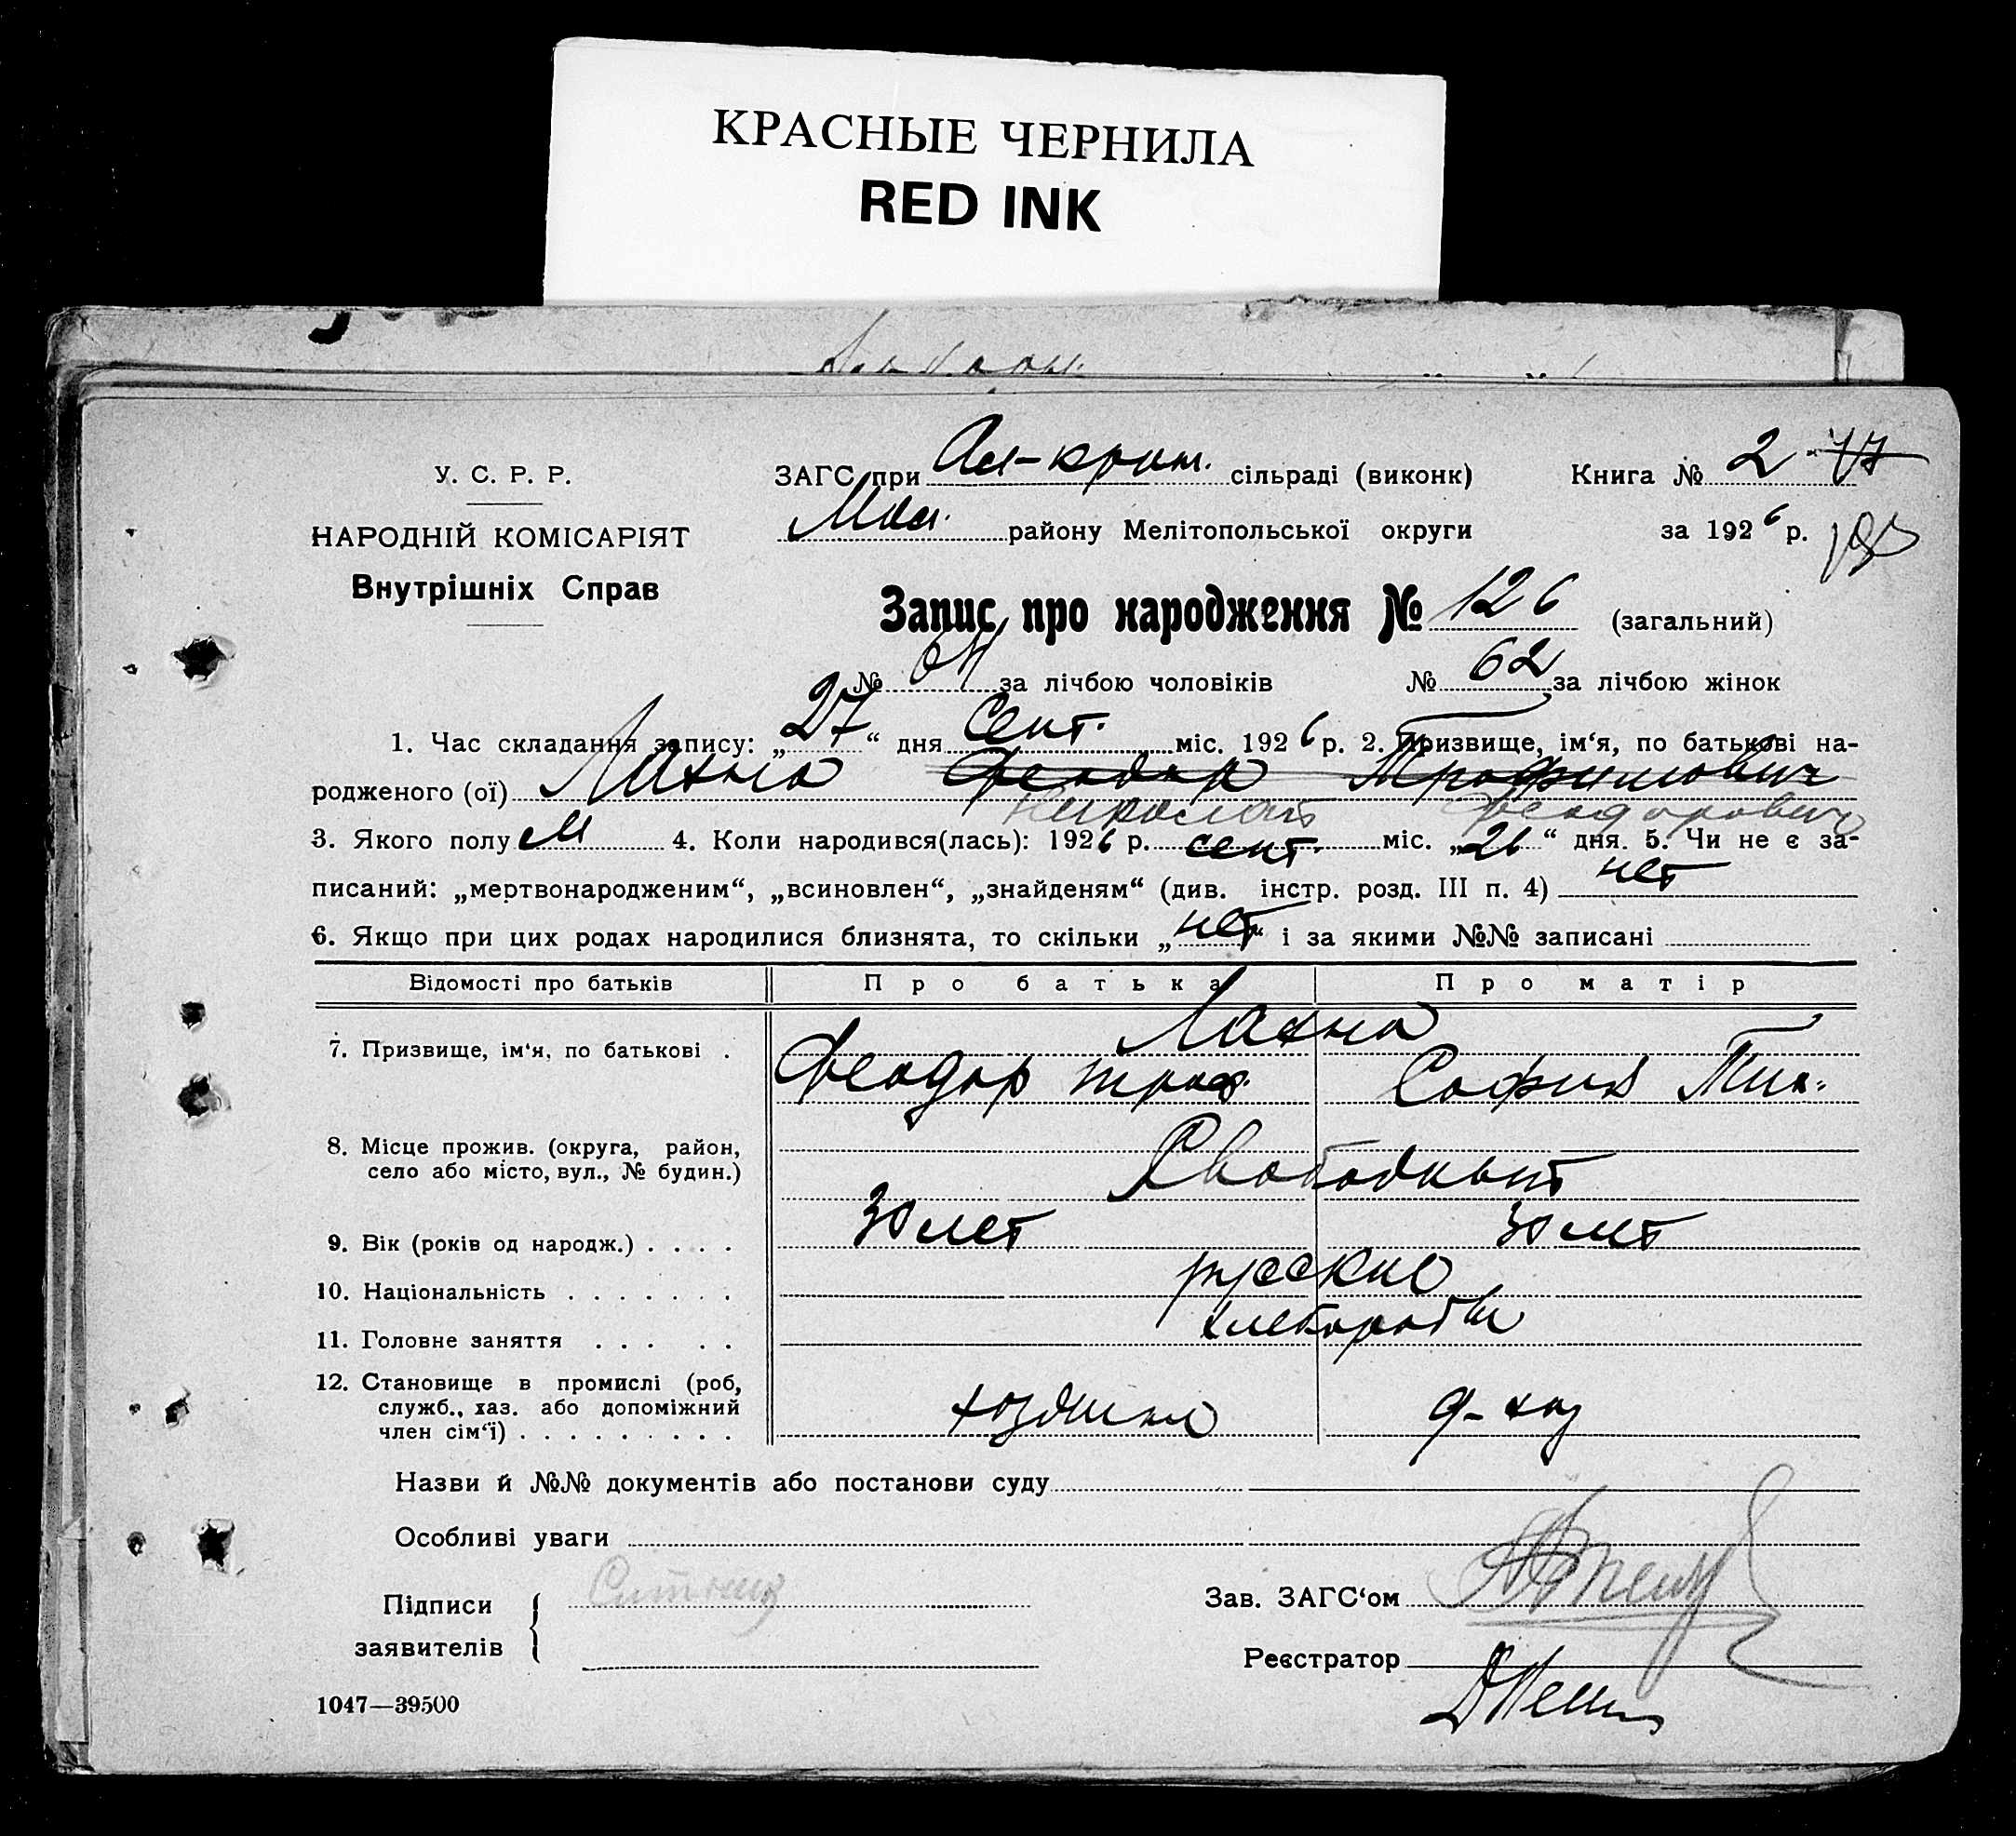 КРАСНЫЕ ЧЕРНИЛА
RED INK
У. С. Р. Р.
НАРОДНІЙ КОМІСАРІЯТ
Внутрішніх Справ
ЗАГС при сільраді (виконк)
району Мелітопольської округи
Книга № 2
за 1926 р.
Запис про народження № 126 (загальний)
№ за лічбою чоловіків № 62 за лічбою жінок
1. Час складання запису: „27“ дня Сент. міс. 1926 р. 2. Призвище, ім‘я, по батькові на-
родженого (ої) Лахно Феодор Трофимович
Феодорович
3. Якого полу М 4. Коли народився(лась): 1926 р. сент. міс. „21“ дня. 5. Чи не є за-
писаний: „мертвонародженим“, „всиновлен“, „знайденям“ (див. інстр. розд. III п. 4) нет
6. Якщо при цих родах народилися близнята, то скільки „нет“ і за якими №№ записані
Відомості про батьків Про батька Про матір
7. Призвище, ім‘я, по батькові . Лахно
Феодор Троф. София Тим.
8. Місце прожив. (округа, район,
село або місто, вул., № будин.) Свободный
9. Вік (років од народж.) . . . . 30 лет 30 лет
10. Національність . . . . . . . русские
11. Головне заняття . . . . . хлеборобы
12. Становище в промислі (роб,
служб., хаз. або допоміжний
член сім‘ї) . . . . . . . . . хозяин д-хоз
Назви й №№ документів або постанови суду
Особливі уваги
Підписи
заявителів
Зав. ЗАГС‘ом
Реєстратор
1047—39500